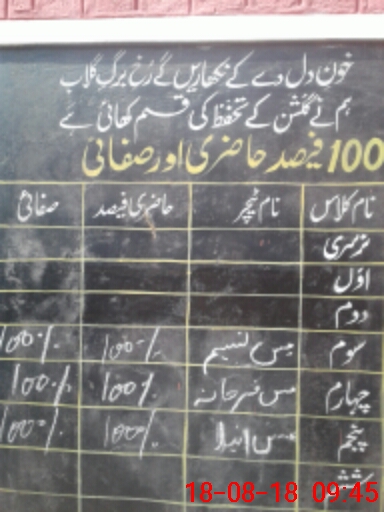 خونِ دل دے کے نکھاریں گے رُخِ برگِ گلاب
ہم نے گلشن کے تحفظ کی قسم کھائی ہے
100 فیصد حاضری اور صفائی
نام کلاس نام ٹیچر حاضری فیصد صفائی
نرسری
اوّل
دوم
سوم مس نسیم 100% 100%
چہارم مس فرحانہ 100% 100%
پنجم مس انیلا 100% 100%
ششم
18-08-18 09:45